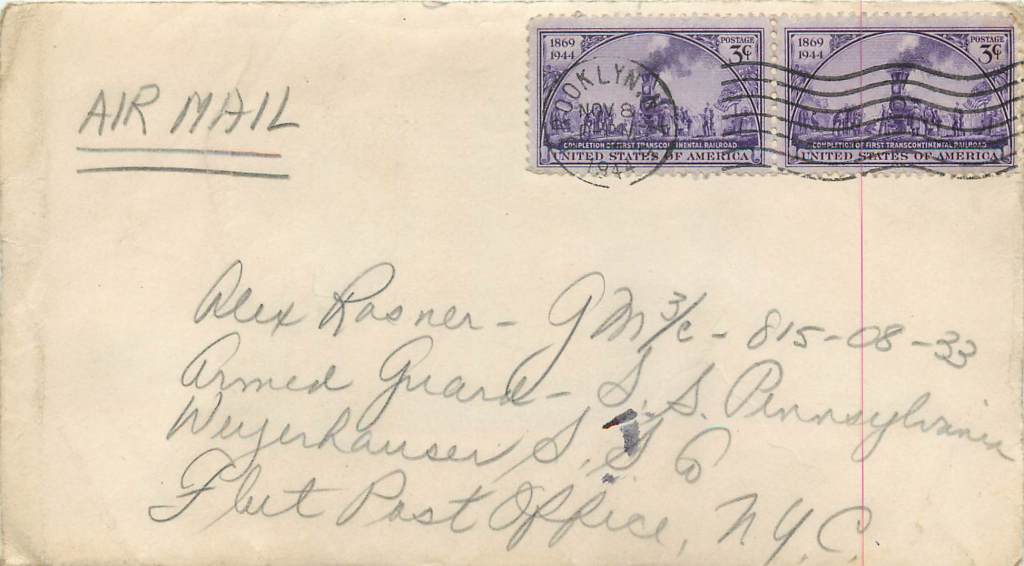 1869
1944
POSTAGE
3¢
COMPLETION OF FIRST TRANSCONTINENTAL RAILROAD
UNITED STATES OF AMERICA
1869
1944
POSTAGE
3¢
COMPLETION OF FIRST TRANSCONTINENTAL RAILROAD
UNITED STATES OF AMERICA
BROOKLYN, N.Y.
NOV 8
1944
AIR MAIL
Alex Rosner - GM 3/c - 815-08-33
Armed Guard - S.S. Pennsylvania
Weyerhauser S.S. Co
Fleet Post Office, N.Y.C.